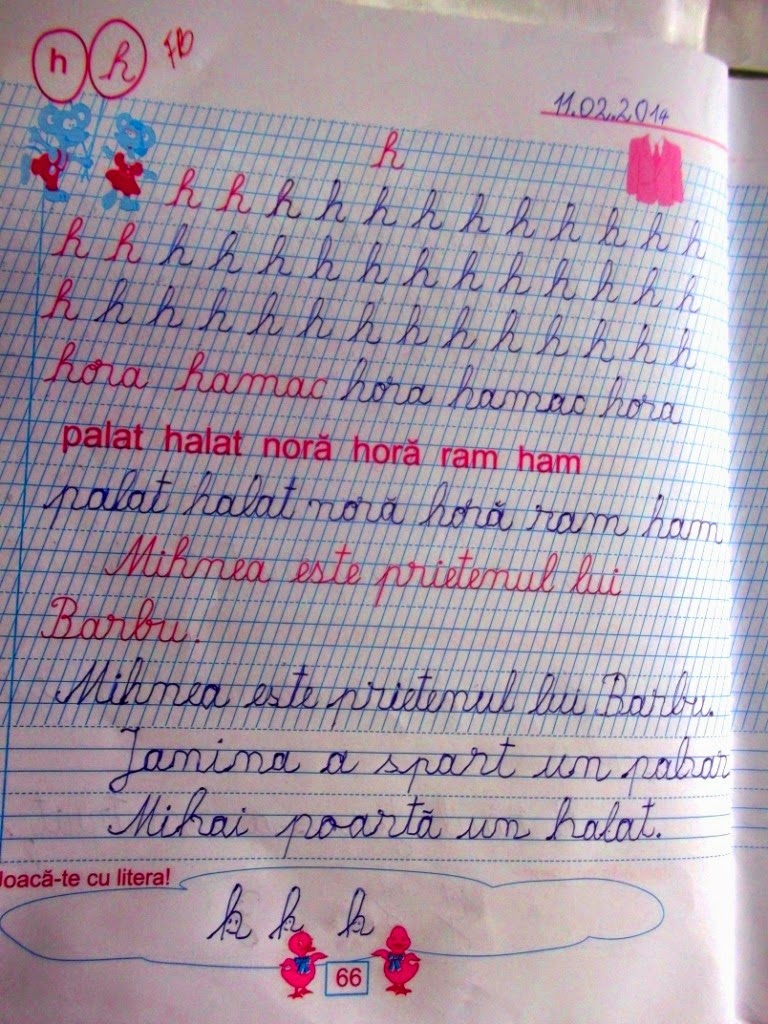 h h FB
11.02.2014
h
h h h h h h h h h h h h
h h h h h h h h h h h h h
h h h h h h h h h h h h h
hora hamac hora hamac hora
palat halat noră horă ram ham
palat halat noră horă ram ham
Mihnea este prietenul lui
Barbu.
Mihnea este prietenul lui Barbu.
Janina a spart un pahar
Mihai poartă un halat.
Joacă-te cu litera!
h h h
66